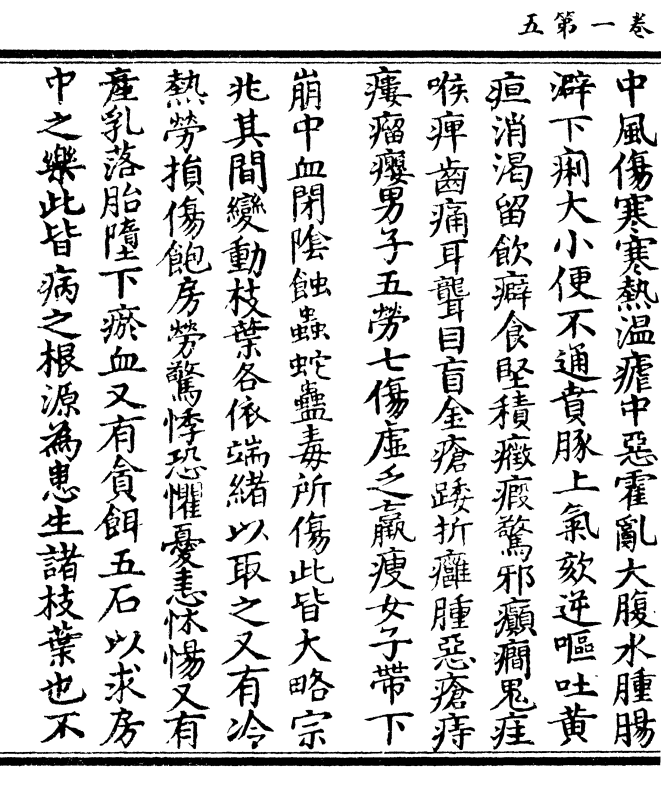 卷一第五
中風傷寒寒熱温瘧中惡霍亂大腹水腫腸
澼下痢大小便不通賁豚上氣欬逆嘔吐黄
疸消渴留飲癖食堅積癥瘕驚邪癲癇鬼疰
喉痺齒痛耳聾目盲金瘡踒折癰腫惡瘡痔
瘻瘤癭男子五勞七傷虛乏羸瘦女子帶下
崩中血閉陰蝕蟲蛇蠱毒所傷此皆大略宗
兆其間變動枝葉各依端緒以取之又有冷
熱勞損傷飽房勞驚悸恐懼憂恚怵惕又有
產乳落胎墮下瘀血又有貪餌五石以求房
中之樂此皆病之根源為患生諸枝葉也不